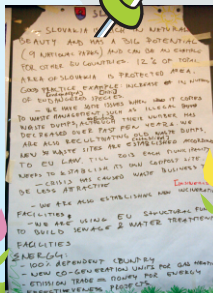 SL
- SLOVAKIA IS RICH IN NATURAL
BEAUTY AND HAS A BIG POTENTIAL
(9 NATIONAL PARKS) AND CAN BE AN EXAMPLE
FOR OTHER EU COUNTRIES 12% OF TOTAL
AREA OF SLOVAKIA IS PROTECTED AREA.
GOOD PRACTICE EXAMPLE INCREASE OF IN NUMBER
OF ENDANGERED SPECIES
- WE HAVE SOME ISSUES WHEN IT COMES
TO WASTE MANAGEMENT, SUCH AS ILLEGAL DUMP
WASTE DUMPS, ALTHOUGH THEIR NUMBER HAS
DECREASED OVER PAST FEW YEARS WE
ARE ALSO RECULTIVATING OLD WASTE DUMPS,
NEW WASTE SITES ARE ESTABLISHED ACCORDING
TO EU LAW. TILL 2013 EACH MUNICIPALITY
NEEDS TO ESTABLISH AN COMPOST SITE
- CRISIS HAS CAUSED WASTE BUSINESS TO
BE LESS ATTRACTIVE
- WE ARE ALSO ESTABLISHING NEW
FACILITIES
- WE ARE USING EU STRUCTURAL FU
TO BUILD SEWAGE & WATER TREATMENT
FACILITIES
ENERGY:
- 100% DEPENDENT COUNTRY
- NEW CO-GENERATION UNITS FOR GAS
EMISSION TRADE - MONEY FOR ENERGY
EFFECTIVENESS PROJECTS